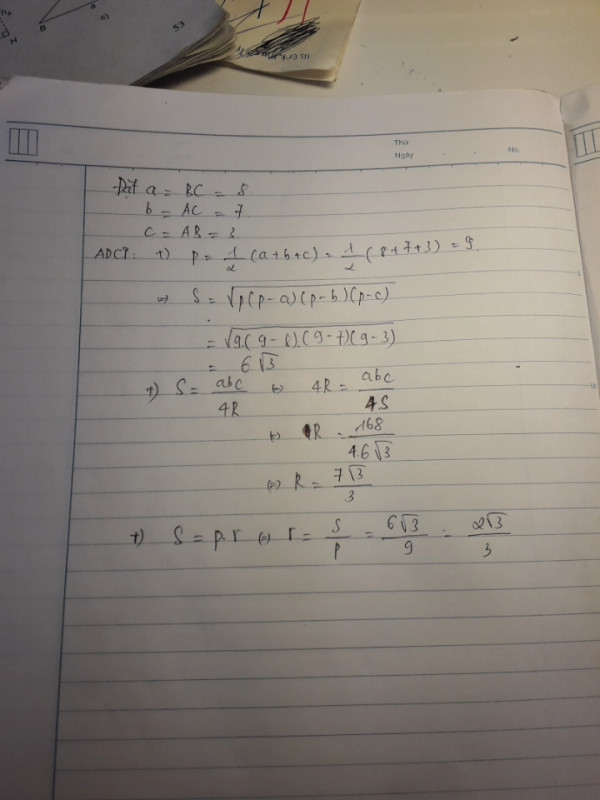 53
Thứ
Ngày
No.
Đặt a = BC = 8
b = AC = 7
c = AB = 3
ADCT: +) p = 1/2 (a+b+c) = 1/2 (8+7+3) = 9
=> S = √p(p-a)(p-b)(p-c)
= √9.(9-8).(9-7)(9-3)
= 6√3
+) S = abc/4R ⇔ 4R = abc/4S
⇔ R = 168/4.6√3
⇔ R = 7√3/3
+) S = p.r ⇔ r = S/p = 6√3/9 = 2√3/3